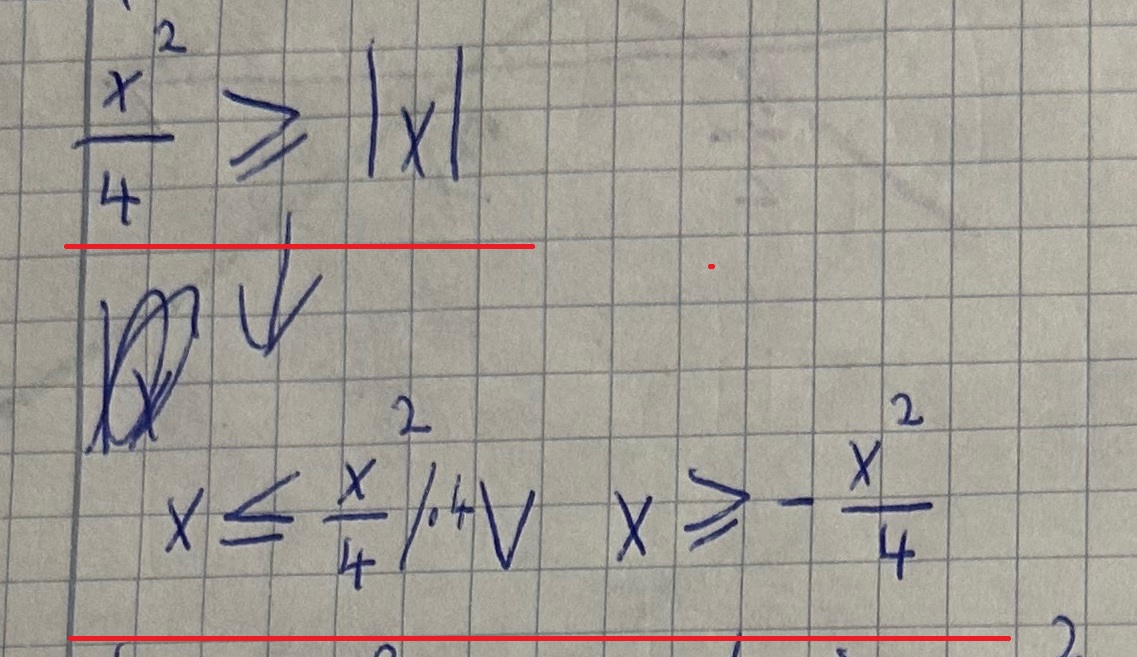 x²/4 ≥ |x|
↓
x ≤ x²/4 /·4 ∨ x ≥ -x²/4